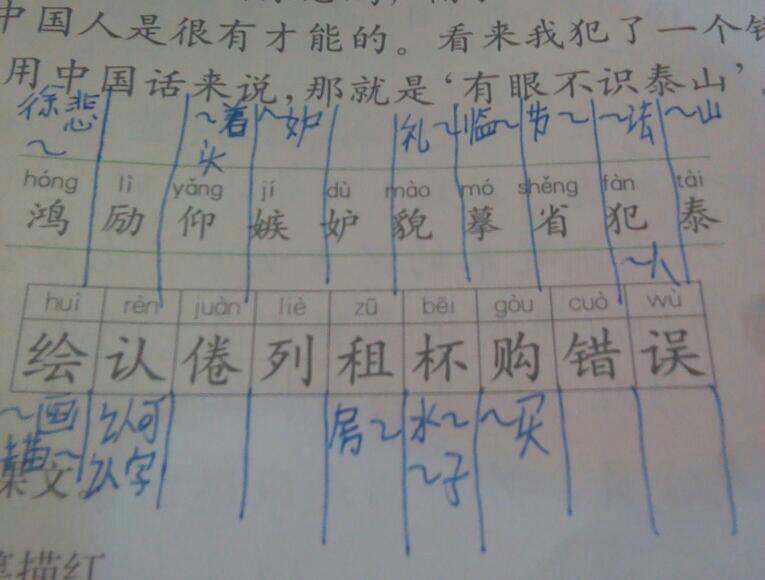 中国人是很有才能的。看来我犯了一个错
用中国话来说,那就是‘有眼不识泰山’
徐悲~ ~着头 ~妒 礼~ 临~ 节~ ~法 ~山
hóng lì yǎng jí dù mào mó shěng fàn tài
鸿 励 仰 嫉 妒 貌 摹 省 犯 泰
~人
huì rèn juàn liè zū bēi gòu cuò wù
绘 认 倦 列 租 杯 购 错 误
~画 房~ 水~ ~买
描~ 认字 ~子
文。
描红